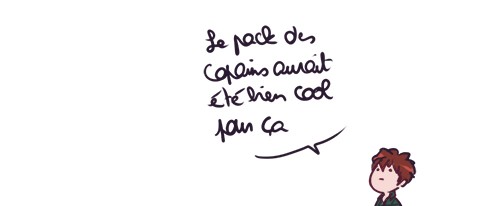 Le pack des
copains aurait
été bien cool
pour ça